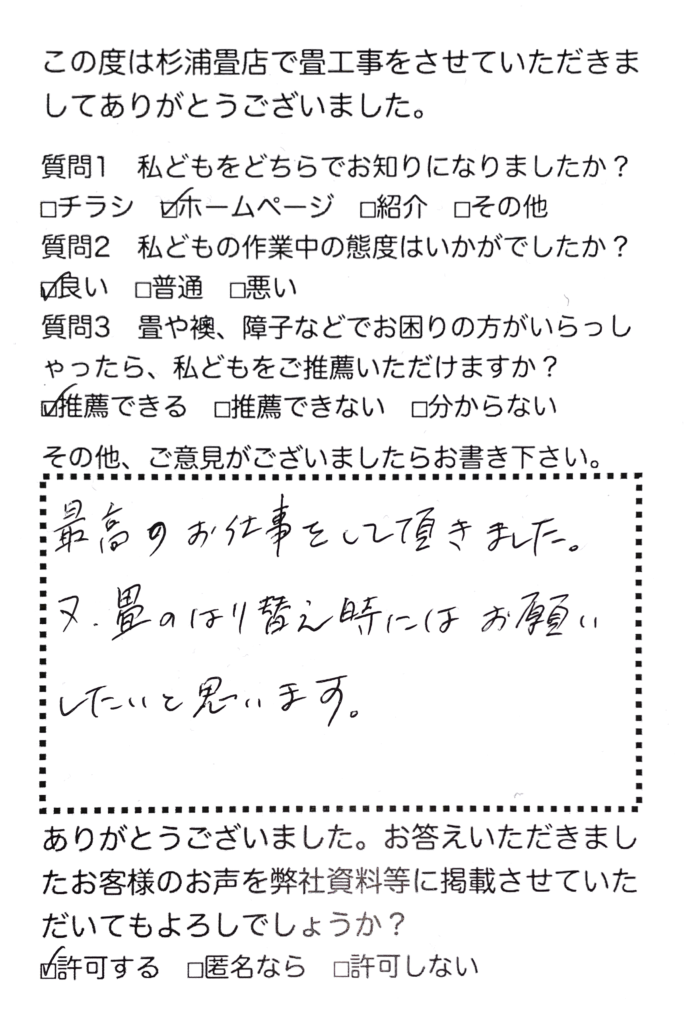 この度は杉浦畳店で畳工事をさせていただきま
してありがとうございました。
質問1　私どもをどちらでお知りになりましたか？
□チラシ　☑ホームページ　□紹介　□その他
質問2　私どもの作業中の態度はいかがでしたか？
☑良い　□普通　□悪い
質問3　畳や襖、障子などでお困りの方がいらっし
ゃったら、私どもをご推薦いただけますか？
☑推薦できる　□推薦できない　□分からない
その他、ご意見がございましたらお書き下さい。
最高のお仕事をして頂きました。
又、畳のはり替え時にはお願い
したいと思います。
ありがとうございました。お答えいただきまし
たお客様のお声を弊社資料等に掲載させていた
だいてもよろしでしょうか？
☑許可する　□匿名なら　□許可しない